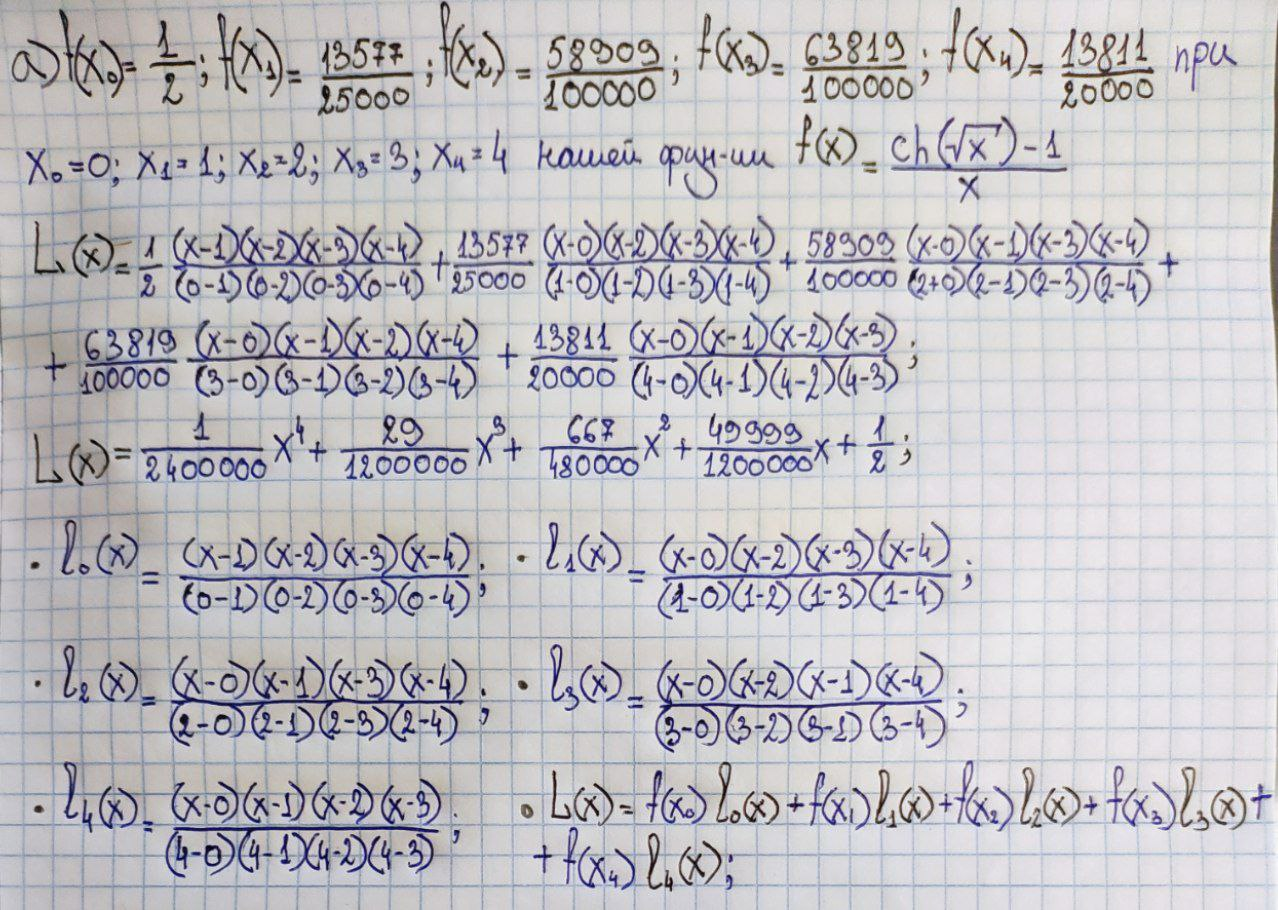 а) f(x₀) = 1/2; f(x₁) = 13577/25000; f(x₂) = 58909/100000; f(x₃) = 63819/100000; f(x₄) = 13811/20000 при
x₀=0; x₁=1; x₂=2; x₃=3; x₄=4 нашей фун-ии f(x) = (ch(√x) - 1)/x
L(x) = 1/2 (x-1)(x-2)(x-3)(x-4)/(0-1)(0-2)(0-3)(0-4) + 13577/25000 (x-0)(x-2)(x-3)(x-4)/(1-0)(1-2)(1-3)(1-4) + 58909/100000 (x-0)(x-1)(x-3)(x-4)/(2+0)(2-1)(2-3)(2-4) +
+ 63819/100000 (x-0)(x-1)(x-2)(x-4)/(3-0)(3-1)(3-2)(3-4) + 13811/20000 (x-0)(x-1)(x-2)(x-3)/(4-0)(4-1)(4-2)(4-3);
L(x) = 1/2400000 x⁴ + 29/1200000 x³ + 667/480000 x² + 49999/1200000 x + 1/2;
· l₀(x) = (x-1)(x-2)(x-3)(x-4)/(0-1)(0-2)(0-3)(0-4); · l₁(x) = (x-0)(x-2)(x-3)(x-4)/(1-0)(1-2)(1-3)(1-4);
· l₂(x) = (x-0)(x-1)(x-3)(x-4)/(2-0)(2-1)(2-3)(2-4); · l₃(x) = (x-0)(x-2)(x-1)(x-4)/(3-0)(3-2)(3-1)(3-4);
· l₄(x) = (x-0)(x-1)(x-2)(x-3)/(4-0)(4-1)(4-2)(4-3); · L(x) = f(x₀) l₀(x) + f(x₁) l₁(x) + f(x₂) l₂(x) + f(x₃) l₃(x) +
+ f(x₄) l₄(x);